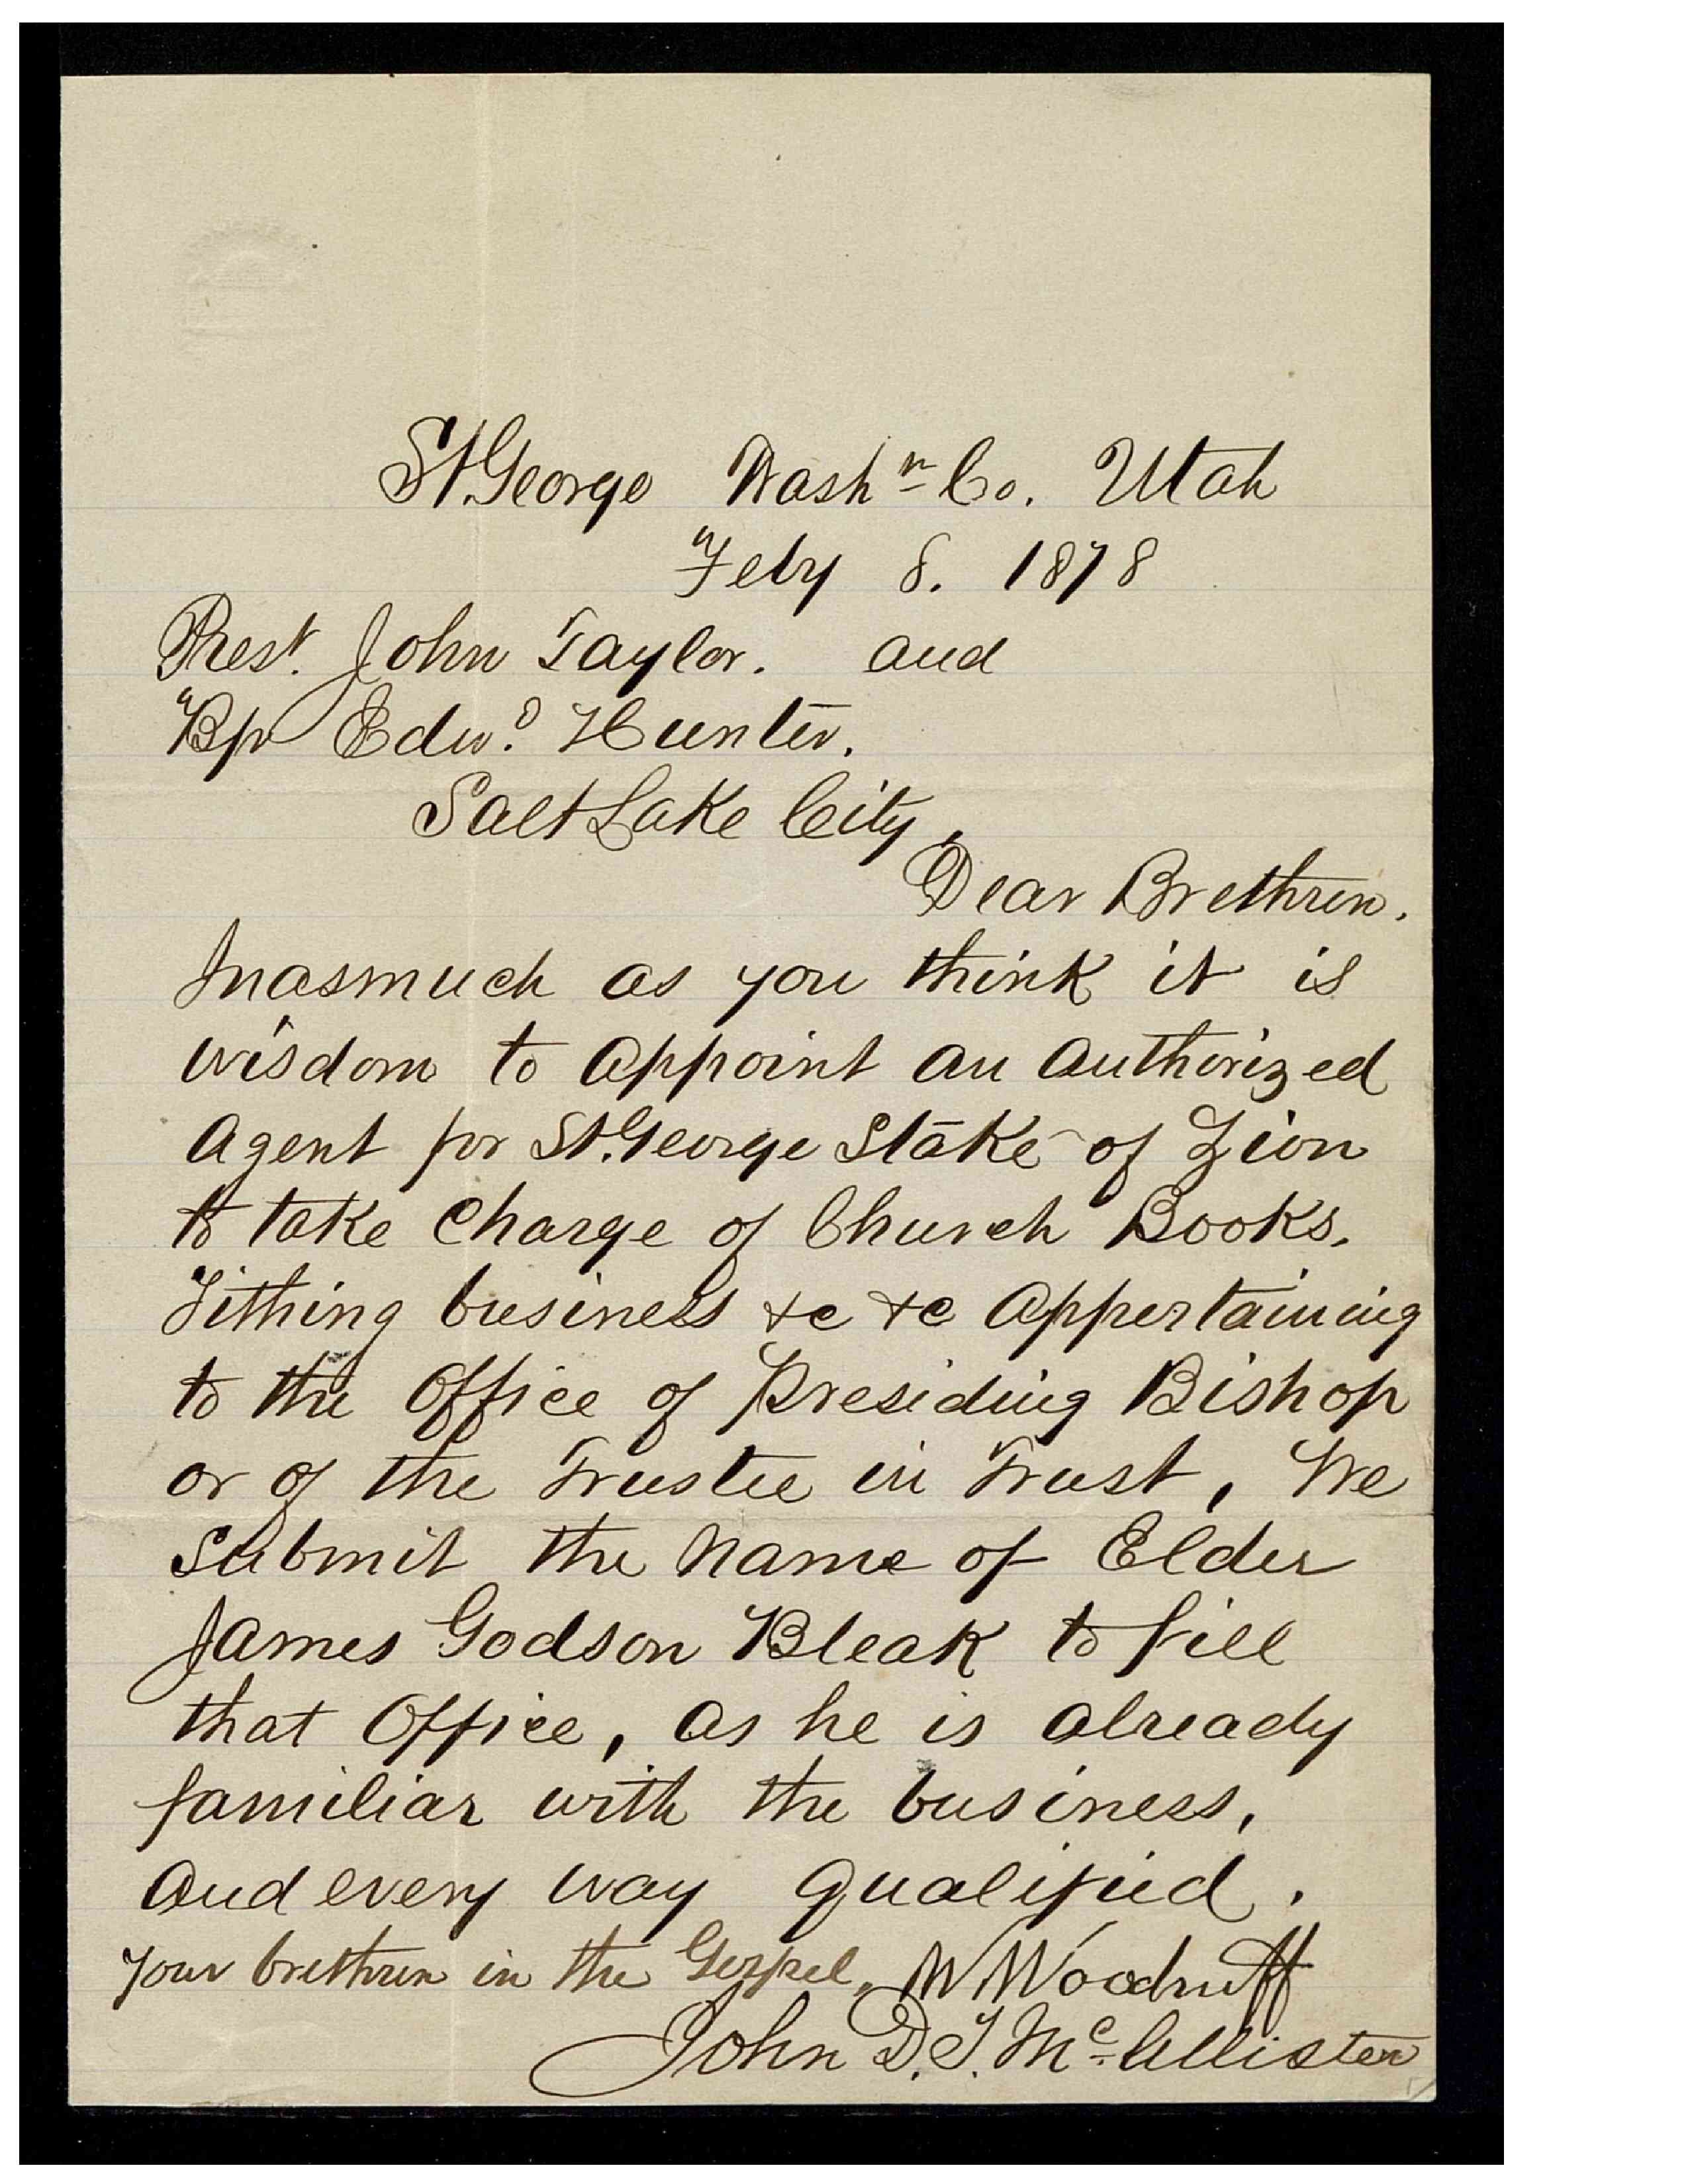 St. George Washn Co. Utah
Feby 8. 1878
Prest. John Taylor. and
Bp Edwd. Hunter.
Salt Lake City,
Dear Brethren.
Inasmuch as you think it is
wisdom to appoint an authorized
Agent for St. George Stake of Zion
to take Charge of Church Books,
Tithing business &c &c Appertaining
to the Office of Presiding Bishop
or of the Trustee in Trust, We
submit the name of Elder
James Godson Bleak to fill
that Office, as he is already
familiar with the business,
and every way qualified.
Your brethren in the Gospel, W Woodruff
John D. T. Mc.Allister